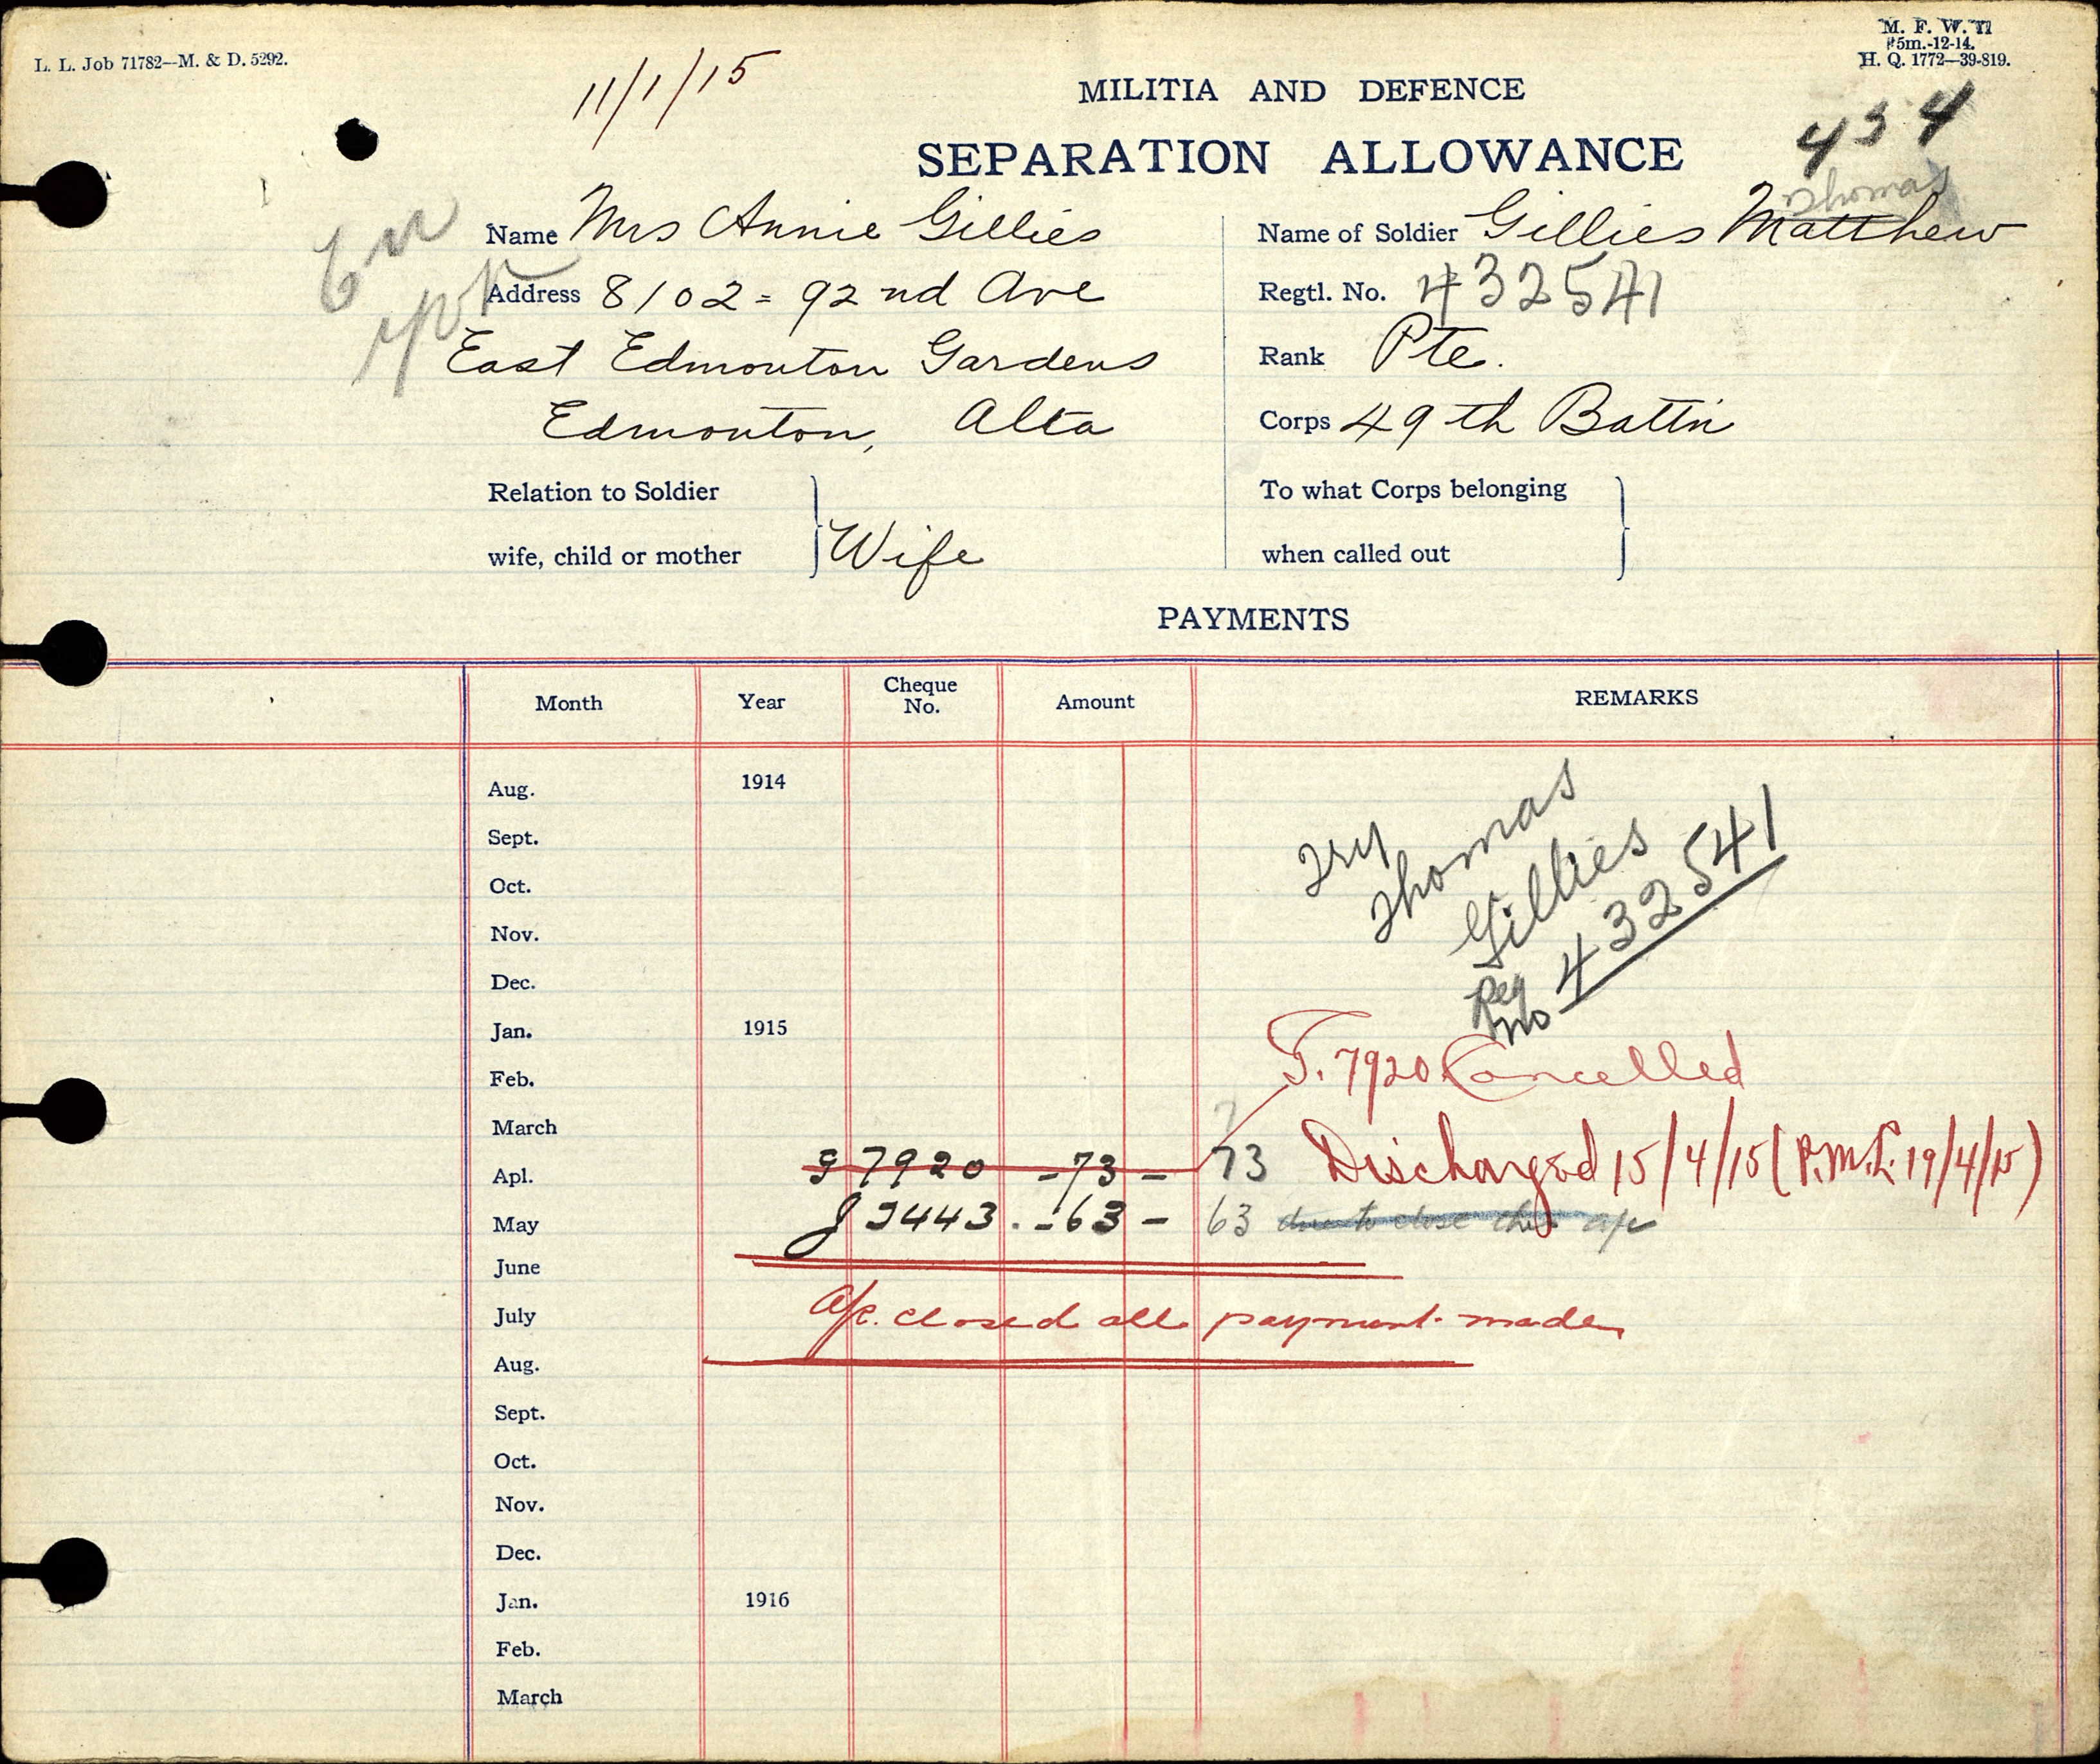 L. L. Job 71782—M. & D. 5292.
M. F. W. 11
H. Q. 1772—39-819.
11/1/15
MILITIA AND DEFENCE
434
SEPARATION ALLOWANCE
Thomas
Name Mrs Annie Gillies
Name of Soldier Gillies Matthew
Address 8102 = 92nd Ave
Regtl. No. 432541
East Edmonton Gardens
Rank Pte.
Edmonton, Alta
Corps 49th Battn
Relation to Soldier
wife, child or mother } Wife
To what Corps belonging
when called out }
PAYMENTS
Month Year Cheque No. Amount REMARKS
Aug. 1914
Sept.
Oct.
Nov.
Dec.
Try
Thomas
Gillies
Reg No 432541
Jan. 1915
Feb. J. 7920 Cancelled
March 7
Apl. J 7920 - 73 - 73 Discharged 15/4/15 (P.M.L. 19/4/15)
May J 9443. - 63 - 63 due to close this a/c
June
July A/c. closed all payment made
Aug.
Sept.
Oct.
Nov.
Dec.
Jan. 1916
Feb.
March